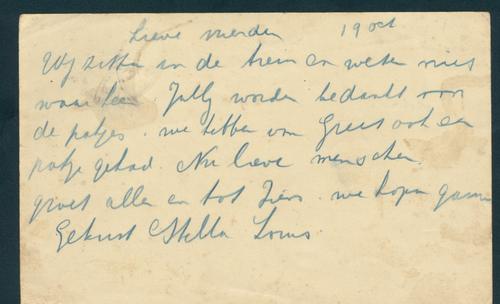 Lieve vrienden 19 oct
Wij zitten in de trein en weten niet
waar heen Jully worden bedankt voor
de pakjes. we hebben van Greet ook een
pakje gehad. Nu lieve menschen
groet allen en tot ziens. we hopen gauw
Gekust Stella Louis